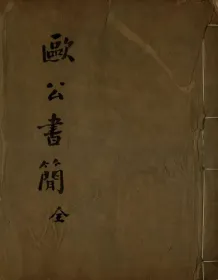 歐公書簡 全